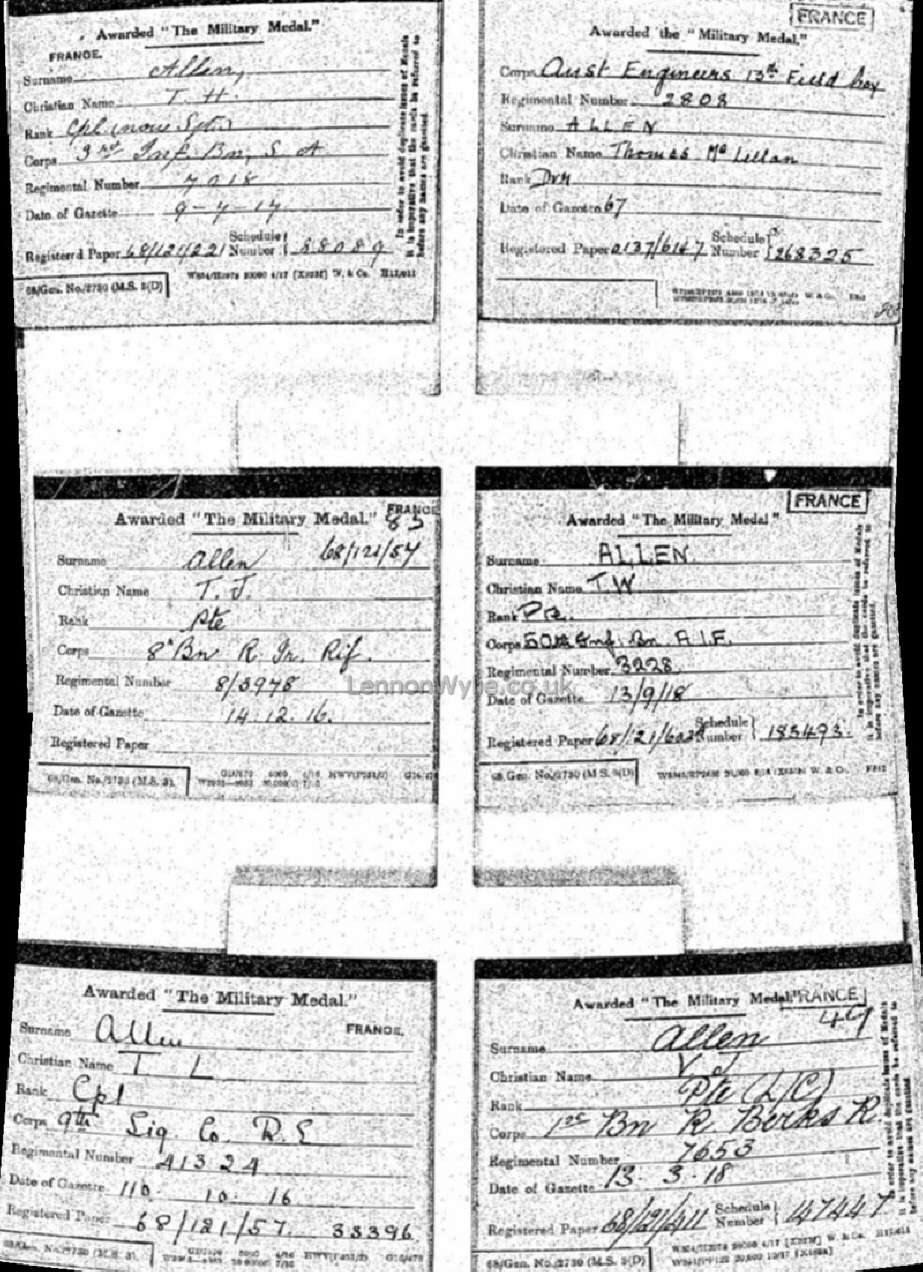 Awarded "The Military Medal."
FRANCE.
Surname Allen,
Christian Name T. H.
Rank Cpl (now Sgt.)
Corps 3rd Inf. Bn, S. A
Regimental Number 7018
Date of Gazette 9-7-17
Registered Paper 68/121/221 Schedule Number 58089
68/Gen. No./2730 (M.S. 3(D)
In order to avoid duplicate issues of Medals it is imperative that the cards be referred to before any names are gazetted.
FRANCE
Awarded the "Military Medal,"
Corps Aust Engineers 13th Field Coy
Regimental Number 2808
Surname ALLEN
Christian Name Thomas Mc Lellan
Rank Dvr
Date of Gazette 67
Registered Paper 0137/6147 Schedule Number P 268325
Awarded "The Military Medal."
FRANCE
83
68/121/57
Surname Allen
Christian Name T. J.
Rank Pte
Corps 8 Bn R. Ir. Rif.
Regimental Number 8/3978
Date of Gazette 14.12.16.
Registered Paper
68/Gen. No./2730 (M.S. 3).
FRANCE
Awarded "The Military Medal"
Surname ALLEN
Christian Name T.W
Rank Pte.
Corps 50th Inf. Bn. A.I.F.
Regimental Number 3228
Date of Gazette 13/9/18
Registered Paper Schedule Number 183493.
68/Gen. No./2730 (M.S. 3(D)
In order to avoid duplicate issues of Medals it is imperative that the cards be referred to before any names are gazetted.
LennonWylie.co.uk
Awarded "The Military Medal."
Surname Allen FRANCE.
Christian Name T L
Rank Cpl
Corps 9th Sig. Co. R.E
Regimental Number 41324
Date of Gazette 10. 16
Registered Paper 68/121/57. 33396
68/Gen. No./2730 (M.S. 3).
Awarded "The Military Medal."
FRANCE
49
Surname Allen
Christian Name V J
Rank Pte (L/C)
Corps 1st Bn R. Berks R.
Regimental Number 7653
Date of Gazette 13. 3. 18
Registered Paper 68/121/411 Schedule Number 47447
68/Gen. No./2730 (M.S. 3(D)
In order to avoid duplicate issues of Medals it is imperative that the cards be referred to before any names are gazetted